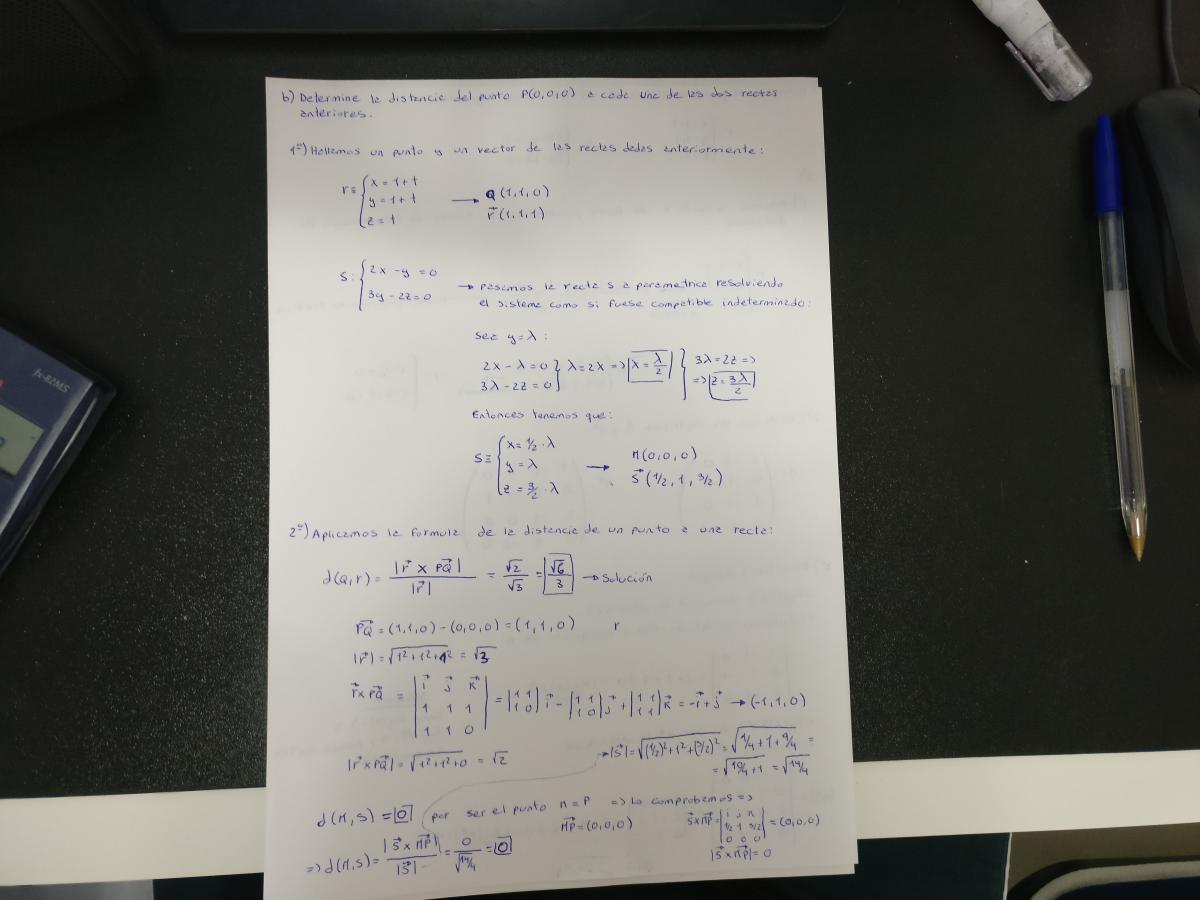 b) Determine la distancia del punto P(0,0,0) a cada una de las dos rectas
anteriores.
1º) Hallamos un punto y un vector de las rectas dadas anteriormente:
r ≡ { x = 1 + t
y = 1 + t
z = t
→ Q (1,1,0)
r⃗ (1,1,1)
S: { 2x - y = 0
3y - 2z = 0
→ Pasamos la recta s a parametrica resolviendo
el sistema como si fuese compatible indeterminado:
Sea y = λ :
2x - λ = 0 } λ = 2x => x = λ/2 } 3λ = 2z =>
3λ - 2z = 0 => z = 3λ/2
Entonces tenemos que:
S ≡ { x = 1/2 · λ
y = λ
z = 3/2 · λ
→ M (0,0,0)
S⃗ (1/2, 1, 3/2)
2º) Aplicamos la formula de la distancia de un punto a una recta:
d(Q,r) = |r⃗ x PQ⃗| / |r⃗| = √2/√3 = √6/3 → Solución
PQ⃗ = (1,1,0) - (0,0,0) = (1,1,0) r
|r⃗| = √1²+1²+1² = √3
r⃗ x PQ⃗ = | i⃗ j⃗ k⃗ | 1 1 1 | 1 1 0 | = |1 1 / 1 0| i⃗ - |1 1 / 1 0| j⃗ + |1 1 / 1 1| k⃗ = -i⃗ + j⃗ → (-1,1,0)
|r⃗ x PQ⃗| = √1²+1²+0 = √2
→ |S⃗| = √(1/2)²+1²+(3/2)² = √1/4+1+9/4 =
= √10/4+1 = √14/4
d(M,s) = 0 por ser el punto M = P => Lo comprobamos =>
MP⃗ = (0,0,0)
S⃗ x MP⃗ = | i j k | 1/2 1 3/2 | 0 0 0 | = (0,0,0)
|S⃗ x MP⃗| = 0
=> d(M,s) = |S⃗ x MP⃗| / |S⃗| = 0 / √14/4 = 0
fx-82MS